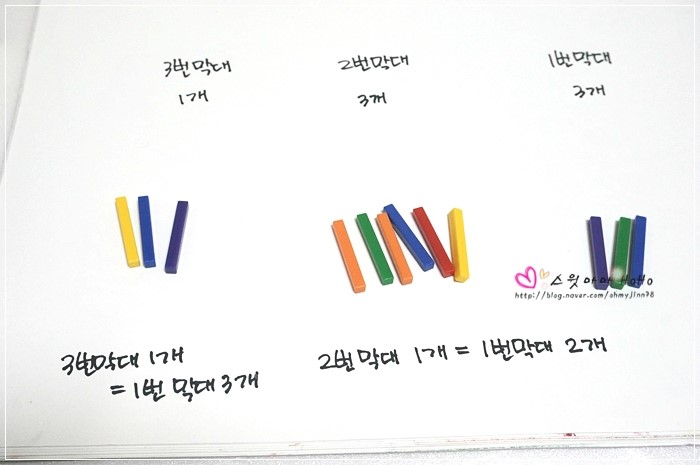 3번막대
1개
2번막대
3개
1번막대
3개
스윗아마 HoHo
http://blog.naver.com/ohmyjinn78
3번막대 1개
= 1번 막대 3개
2번막대 1개 = 1번막대 2개